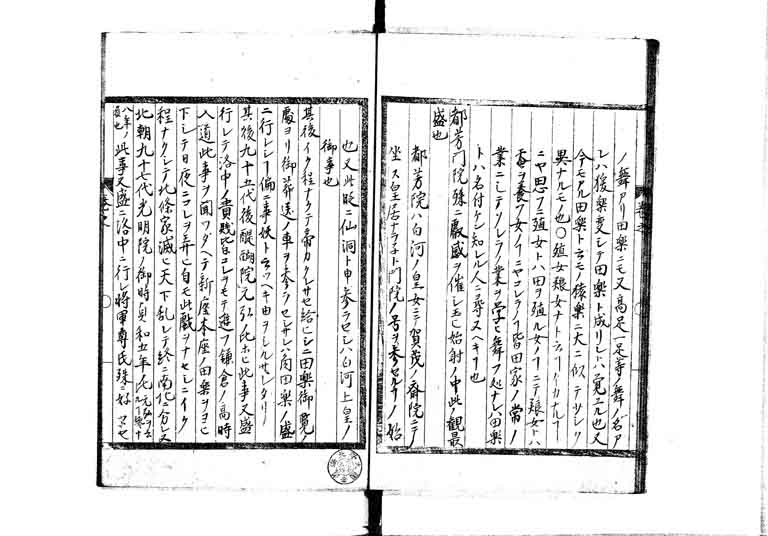 ノ舞アリ田楽ニモ又高足一足等ノ舞ノ名ア
レハ猿楽変シテ田楽ト成リシハ覚エル也又
今モアル田楽ト云モノ猿楽ニ大ニ似テサレク
異ナルモノ也〇殖女粮女ナト云フイカナルフ
ニヤ思フニ殖女トハ田ヲ殖ル女ノフニテ粮女トハ
ヲ養フ女ノフニヤコレラノフ皆田家ノ常ノ
業ニシテソレラノ業ヲ学ヒ舞フ処ナレハ田楽
トハ名付ケン知レル人ニ尋ヌヘキナリ
郁芳門院殊ニ叡感ヲ催シ玉ヒ姑射ノ中此ノ観最
盛也
郁芳院ハ白河ノ皇女ニテ賀茂ノ斎院ニテ
坐ス皇居ナラネト門院ノ号ヲ参セルナノ始
也又此時ニ仙洞ト申参ラセシハ白河上皇ノ
御事也
其後イク程ナクテ帝カクレサセ給ヒシニ田楽御覧ノ
殿ヨリ御葬送ノ車ヲ参ラセシサレハ尚田楽ノ盛
ニ行レシフ偏ニ妖ト云ツヘキ由ヲシルサレタリ
其後九十五代後醍醐院元弘ノ此ホヒ此事又盛ニ
行レテ洛中ノ貴賤皆コレヲモテ遊フ鎌倉ノ高時
入道此事ヲ聞ツタヘテ新座本座ノ田楽ヲヨヒ
下シテ日夜ニコレヲ弄ヒ自モ此戯ヲナセシニイク
程ナクシテ北條家滅ヒ天下乱レテ終ニ南北分レヌ
北朝九十七代光明院ノ御時貞和五年ノ此
此事又盛ニ洛中ニ行レ将軍尊氏殊ニ好マセ